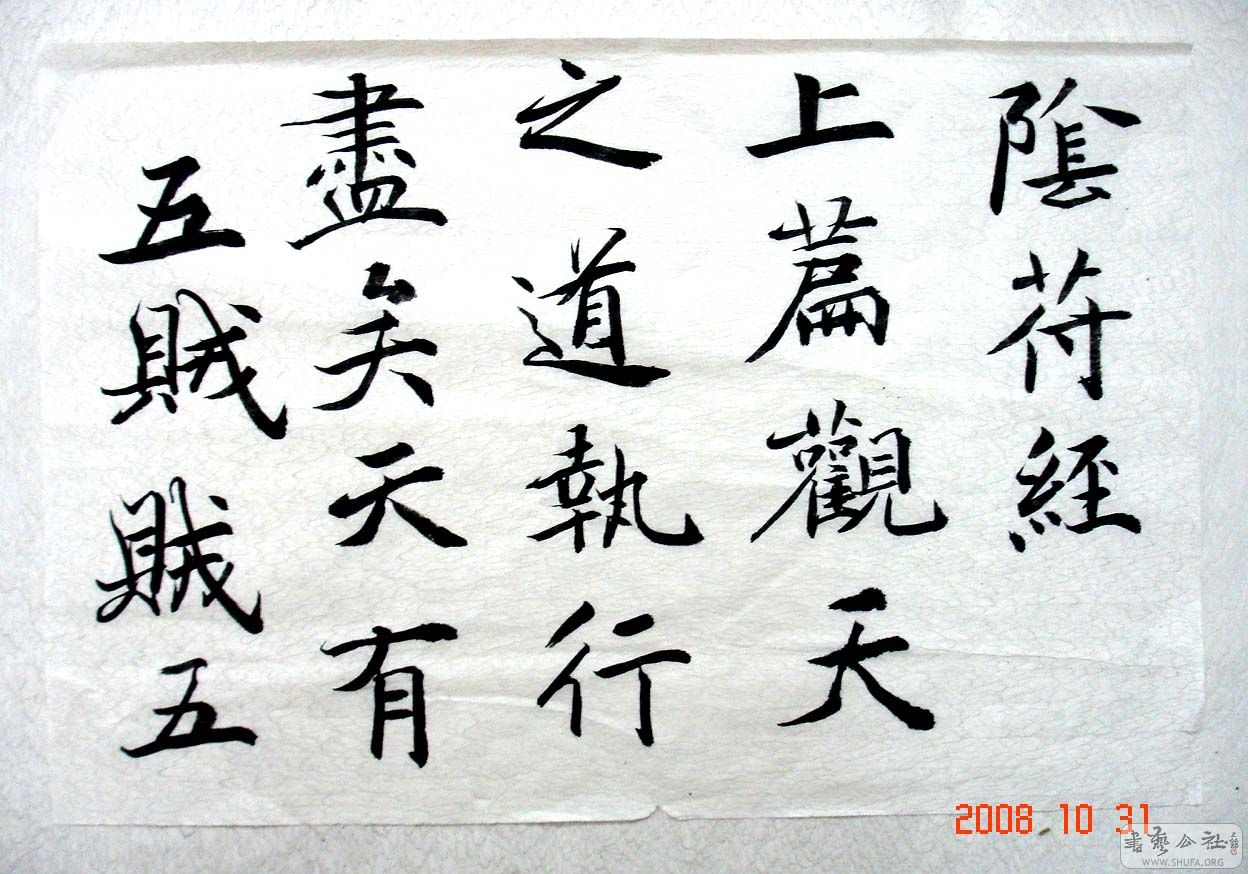 陰符經
上篇觀天
之道執行
盡矣天有
五賊賊五
2008.10 31
書藝公社
WWW.SHUFA.ORG